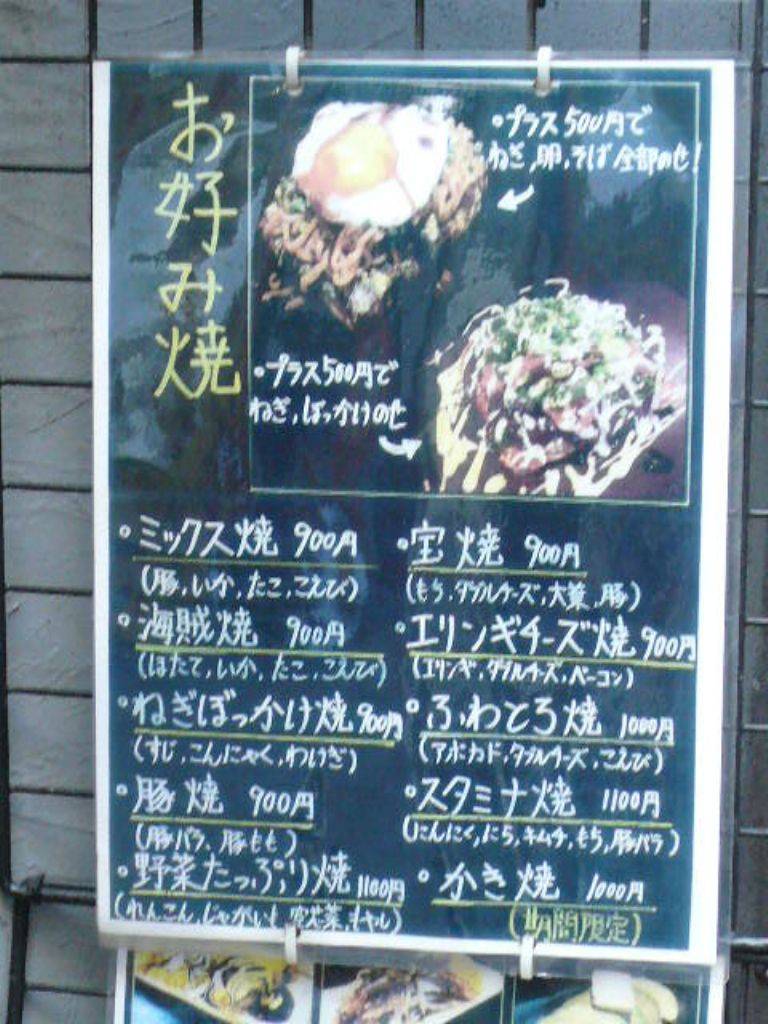 お好み焼
・プラス500円で
ねぎ,卵,そば全部のせ!
・プラス500円で
ねぎ,ぼっかけのせ
・ミックス焼 900円
(豚,いか,たこ,こえび)
・海賊焼 900円
(ほたて,いか,たこ,こえび)
・ねぎぼっかけ焼 900円
(すじ,こんにゃく,わけぎ)
・豚焼 900円
(豚バラ、豚もも)
・野菜たっぷり焼 1100円
(れんこん,じゃがいも,空芯菜,キャベツ)
・宝焼 900円
(もち,ダブルチーズ,大葉,豚)
・エリンギチーズ焼 900円
(エリンギ,ダブルチーズ,ベーコン)
・ふわとろ焼 1000円
(アボカド,ダブルチーズ,こえび)
・スタミナ焼 1100円
(にんにく,にら,キムチ,もち,豚バラ)
・かき焼 1000円
(期間限定)